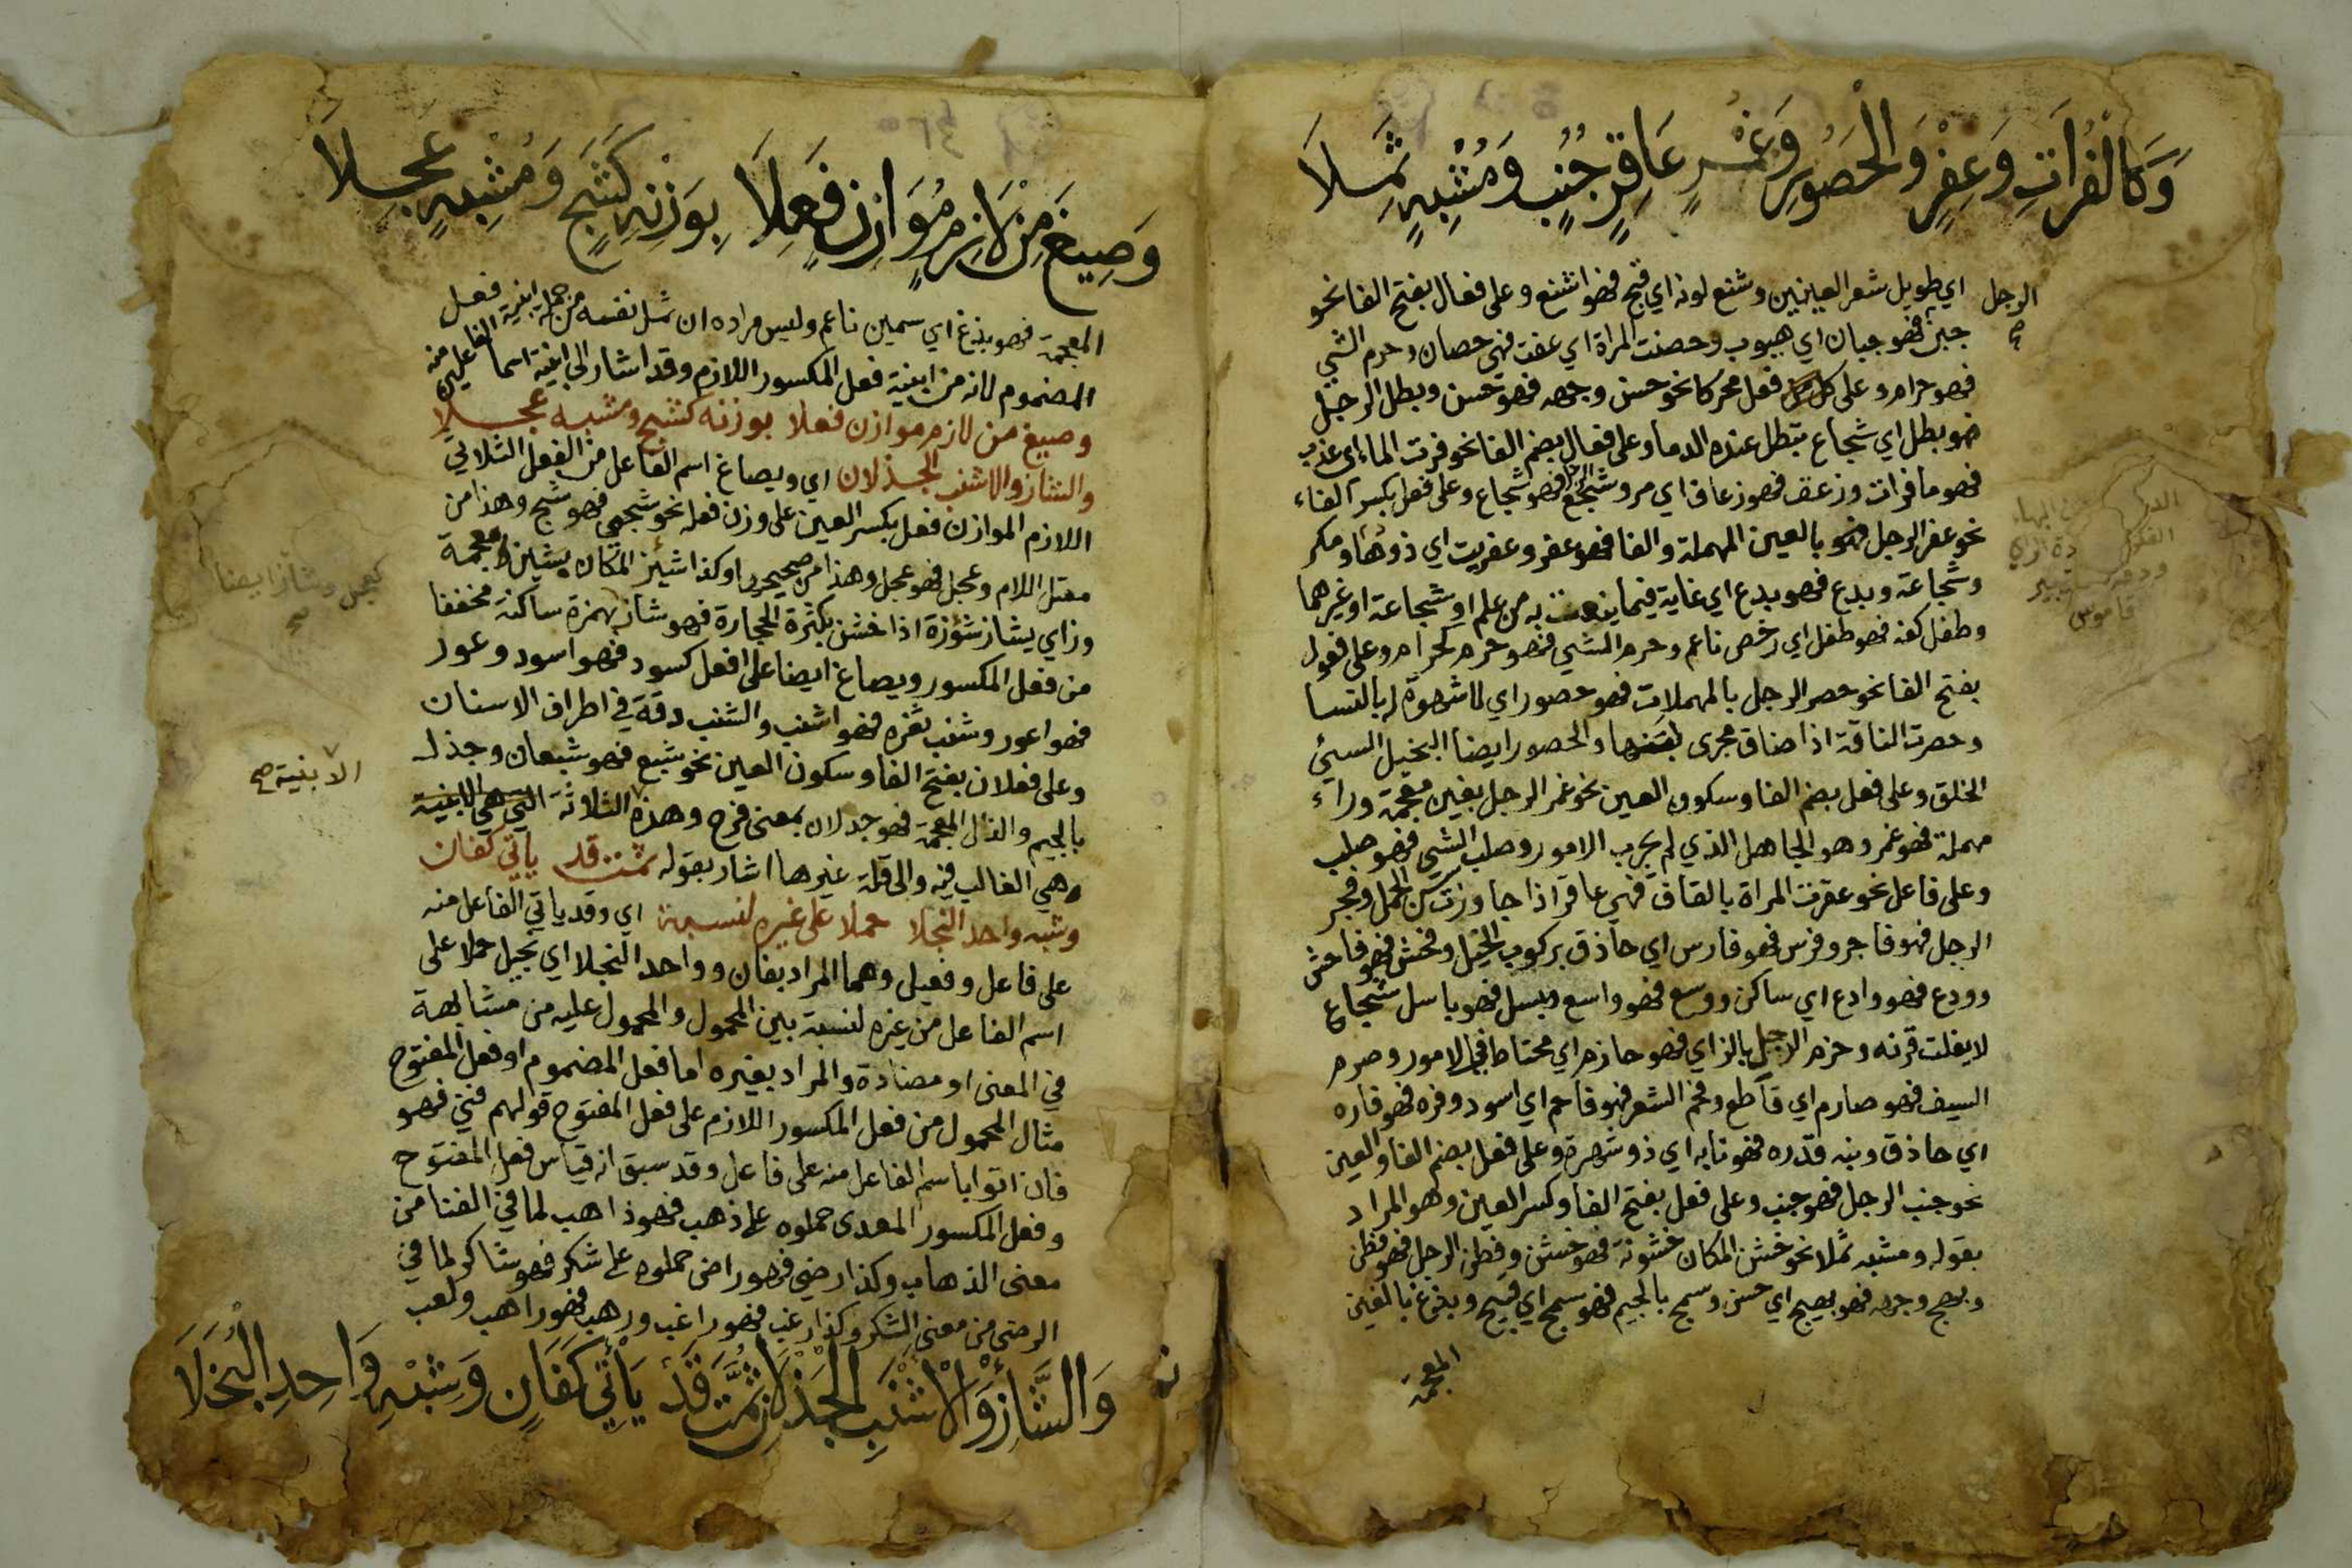 وَكَالْفُرَاتِ وَعِفْرٍ وَالْحَصُورِ وَغُمْرٍ عَاقِرٍ جُنُبٍ وَمُشْبِهٍ ثَمِلَا
الرجل
اي طويل شعر العينين وشنع لونه اي قبح فهو اشنع وعلى فعال بفتح الفا نحو
جبن فهو جبان اي هيوب وحصنت المراة اي عفت فهي حصان وحرم الشي
فهو حرام وعلى فعل محركا نحو حسن وجهه فهو حسن وبطل الرجل
فهو بطل اي شجاع تبطل عنده الدما وعلى فعال بضم الفا نحو فرت الماء اي عذب
فهو ما فرات وزعق فهو زعاق اي مر وشجع فهو شجاع وعلى فعل بكسر الفاء
نحو عفر الرجل فهو بالعين المهملة والفا فهو عفر وعفريت اي ذو دهاء ومكر
وشجاعة وبدع فهو بدع اي غاية فيما ينعت به من علم او شجاعة او غيرهما
وطفل كفه فهو طفل اي رخص ناعم وحرم الشي فهو حرم كحرام وعلى فعول
بفتح الفا نحو حصر الرجل بالمهملات فهو حصور اي لا شهوة له بالنسا
وحصرت الناقة اذا ضاق مجرى لبنها والحصور ايضا البخيل السيئ
الخلق وعلى فعل بضم الفا وسكون العين نحو غمر الرجل بغين معجمة وراء
مهملة فهو غمر وهو الجاهل الذي لم يجرب الامور وصلب الشي فهو صلب
وعلى فاعل نحو عقرت المراة بالقاف فهي عاقر اذا جاوزت سن الحمل وفجر
الرجل فهو فاجر وفرس فهو فارس اي حاذق بركوب الخيل وفحش فهو فاحش
وودع فهو وادع اي ساكن ووسع فهو واسع وبسل فهو باسل شجاع
لا يفلت قرنه وحزم الرجل بالزاي فهو حازم اي محتاط في الامور وصرم
السيف فهو صارم اي قاطع وفحم الشعر فهو فاحم اي اسود وفره فهو فاره
اي حاذق ونبه قدره فهو نابه اي ذو شهرة وعلى فعل بضم الفا والعين
نحو جنب الرجل فهو جنب وعلى فعل بفتح الفا وكسر العين وهو المراد
بقوله ومشبه ثملا نحو خشن المكان خشونة فهو خشن وفطن الرجل فهو فطن
وبهج وجهه فهو بهيج اي حسن وسمج بالجيم فهو سمج اي قبيح وبدغ بالغين
المعجمة
قاموس
وَصِيغَ مِنْ لَازِمٍ مُوَازِنٍ فَعِلَا بِوَزْنِهِ كَشَجٍ وَمُشْبِهٍ عَجِلَا
المعجمة فهو بدغ اي سمين ناعم وليس مراده ان ثمل نفسه من جملة ابنية فعل
المضموم لانه من ابنية فعل المكسور اللازم وقد اشار الى ابنية اسما الفاعلين منه
وصيغ من لازم موازن فعلا بوزنه كشج ومشبه عجلا
والشاز والاشنب الجذلان اي ويصاغ اسم الفاعل من الفعل الثلاثي
اللازم الموازن فعل بكسر العين على وزن فعله نحو شجي فهو شج وهذا من
معتل اللام وعجل فهو عجل وهذا من صحيحها وكذا شئز المكان بشين معجمة
وزاي يشاز شؤزة اذا خشن بكثرة الحجارة فهو شاز بهمزة ساكنة مخففا
من فعل المكسور ويصاغ ايضا على افعل كسود فهو اسود وعور
فهو اعور وشنب ثغره فهو اشنب والشنب دقة في اطراف الاسنان
وعلى فعلان بفتح الفا وسكون العين نحو شبع فهو شبعان وجذل
بالجيم والذال المعجمة فهو جذلان بمعنى فرح وهذه الثلاثة التي هي الابنية
الابنية صح
وهي الغالب فيه والى قلة غيرها اشار بقوله ثمت قد ياتي كفان
وشبه واحد البخلا حملا على غيره لنسبة اي وقد ياتي الفاعل منه
على فاعل وفعيل وهما المراد بفان وواحد البخلا اي بخيل حملا على
اسم الفاعل من غيره لنسبة بين المحمول والمحمول عليه من مشابهة
في المعنى او مضادة والمراد بغيره اما فعل المضموم او فعل المفتوح
مثال المحمول من فعل المكسور اللازم على فعل المفتوح قولهم فني فهو
فان اتوا باسم الفاعل منه على فاعل وقد سبق انه قياس فعل المفتوح
وفعل المكسور المعدى حملوه على ذهب فهو ذاهب لما في الفنا من
معنى الذهاب وكذا رضي فهو راض حملوه على شكر فهو شاكر لما في
الرضى من معنى الشكر وكذا رغب فهو راغب ورهب فهو راهب ولعب
وَالشَّأْزِ وَالْاَشْنَبِ الْجَذْلَانِ ثُمَّتَ قَدْ يَأْتِي كَفَانٍ وَشِبْهِ وَاحِدِ الْبُخَلَا